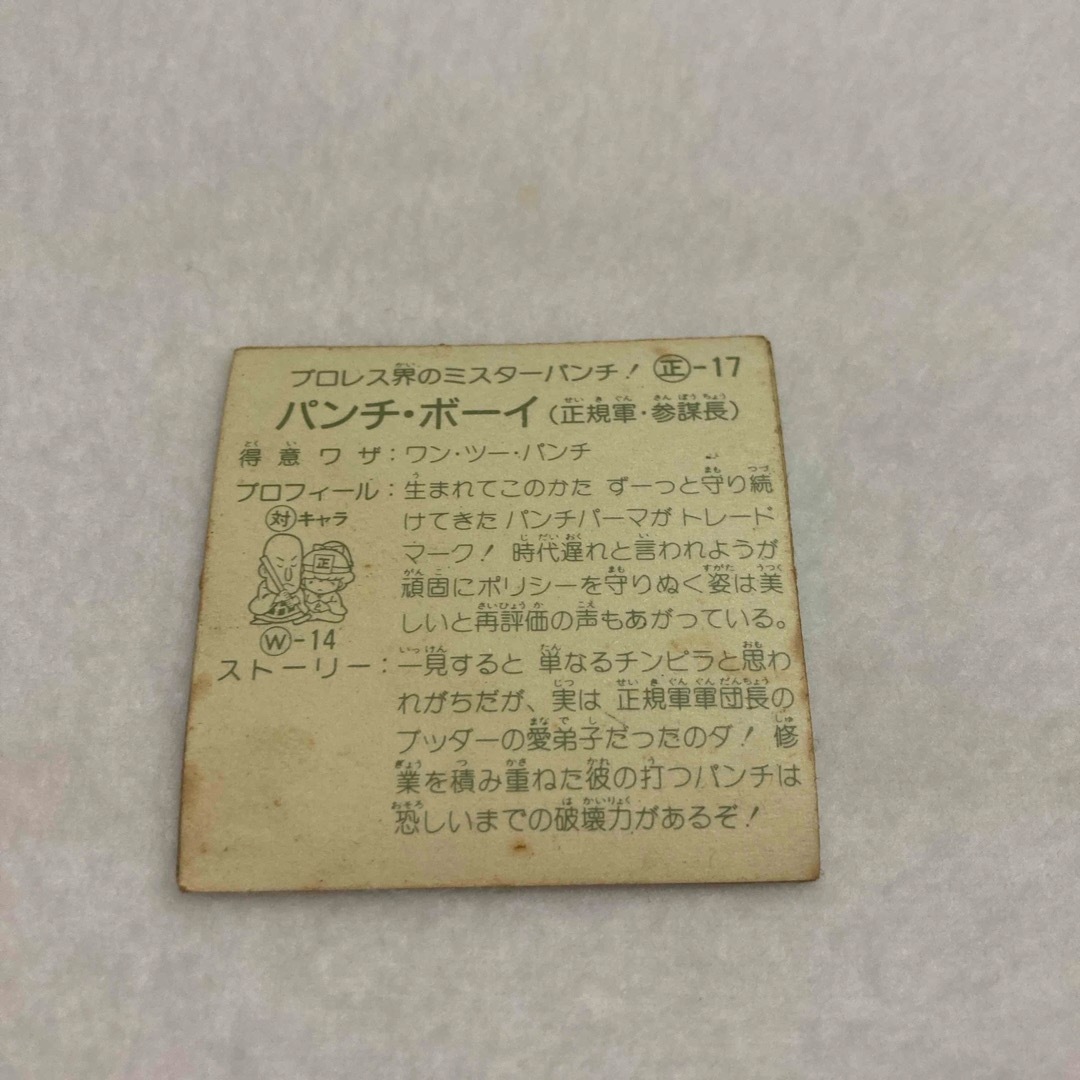 プロレス界のミスターパンチ! 正-17
パンチ・ボーイ(正規軍・参謀長)
得意ワザ:ワン・ツー・パンチ
プロフィール:生まれてこのかた ずーっと守り続
けてきた パンチパーマがトレード
マーク! 時代遅れと言われようが
頑固にポリシーを守りぬく姿は美
しいと再評価の声もあがっている。
対キャラ
正
W-14
ストーリー:一見すると 単なるチンピラと思わ
れがちだが、実は 正規軍軍団長の
ブッダーの愛弟子だったのダ! 修
業を積み重ねた彼の打つパンチは
恐しいまでの破壊力があるぞ!